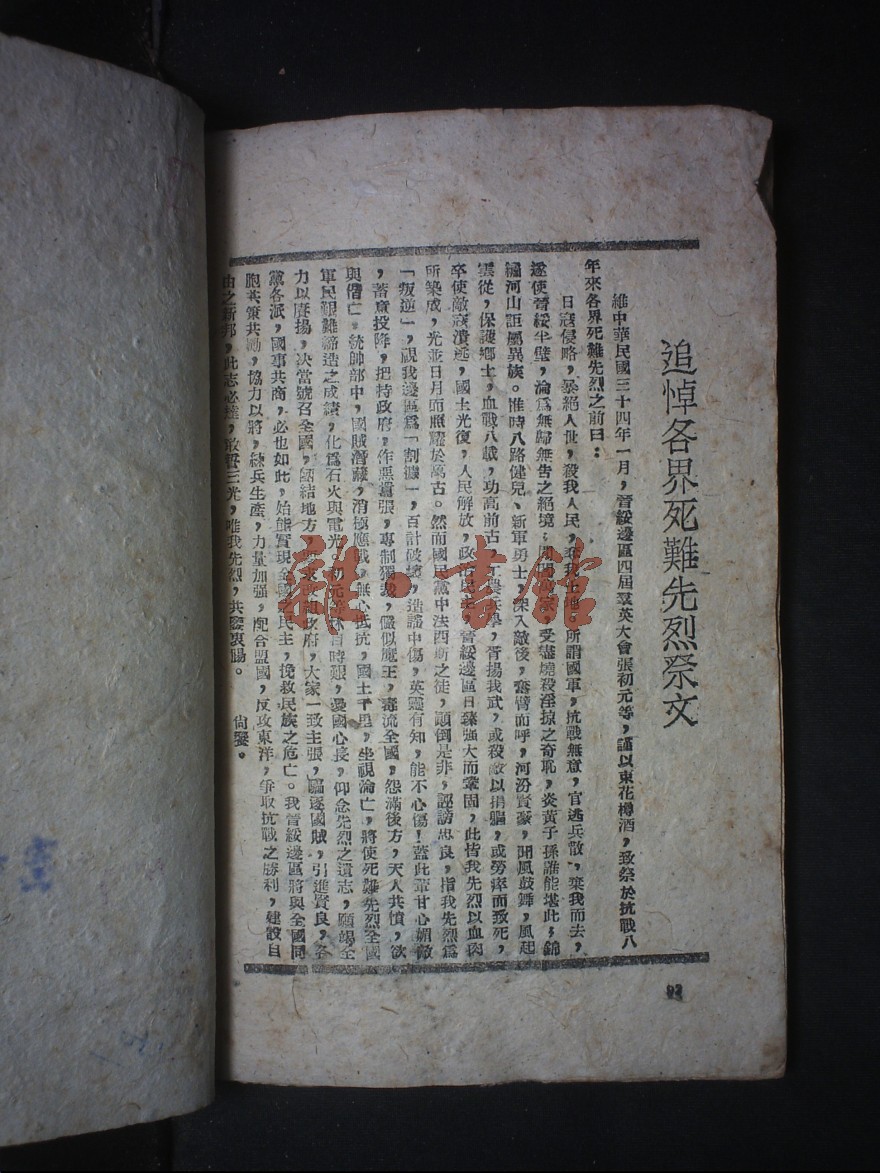 追悼各界死難先烈祭文
維中華民國三十四年一月，晉綏邊區四屆羣英大會張初元等，謹以束花樽酒，致祭於抗戰八
年來各界死難先烈之前曰：
日寇侵略，暴絕人世，殺我人民，奪我土地。所謂國軍，抗戰無意，官逃兵散，棄我而去，
遂使晉綏半壁，淪爲無歸無告之絕境，閭閻 受盡燒殺淫掠之奇恥，炎黃子孫誰能堪此，錦
繡河山詎屬異族。惟時八路健兒、新軍勇士，深入敵後，奮臂而呼，河汾賢豪，聞風鼓舞，風起
雲從，保護鄉土，血戰八載，功高前古， 胥揚我武，或殺敵以捐軀，或勞瘁而致死，
卒使敵寇潰退，國土光復，人民解放，政治民主，晉綏邊區日臻强大而鞏固，此皆我先烈以血肉
所築成，光並日月而照耀於萬古。然而國民黨中法西斯之徒，顚倒是非，誣謗忠良，指我先烈爲
「叛逆」，視我邊區爲「割據」，百計破壞，造謠中傷，英靈有知，能不心傷！蓋此輩甘心媚敵
，蓄意投降，把持政府，作惡囂張，專制獨裁，儼似魔王，毒流全國，怨滿後方，天人共憤，欲
與偕亡，統帥部中，國賊潛藏，消極應戰，無心抵抗，國土千里，坐視淪亡，將使死難先烈全國
軍民艱難締造之成績，化爲石火與電光。初元等 目時艱，愛國心長，仰念先烈之遺志，願竭全
力以賡揚，决當號召全國，團結地方， 政府，大家一致主張，驅逐國賊，引進賢良，各
黨各派，國事共商，必也如此，始能實現全國之民主，挽救民族之危亡。我晉綏邊區將與全國同
胞共策共勵，協力以將，練兵生產，力量加强，配合盟國，反攻東洋，爭取抗戰之勝利，建設自
由之新邦，此志必達，敢誓三光，唯我先烈，共鑒衷腸。 尙饗。
93
雜·書館